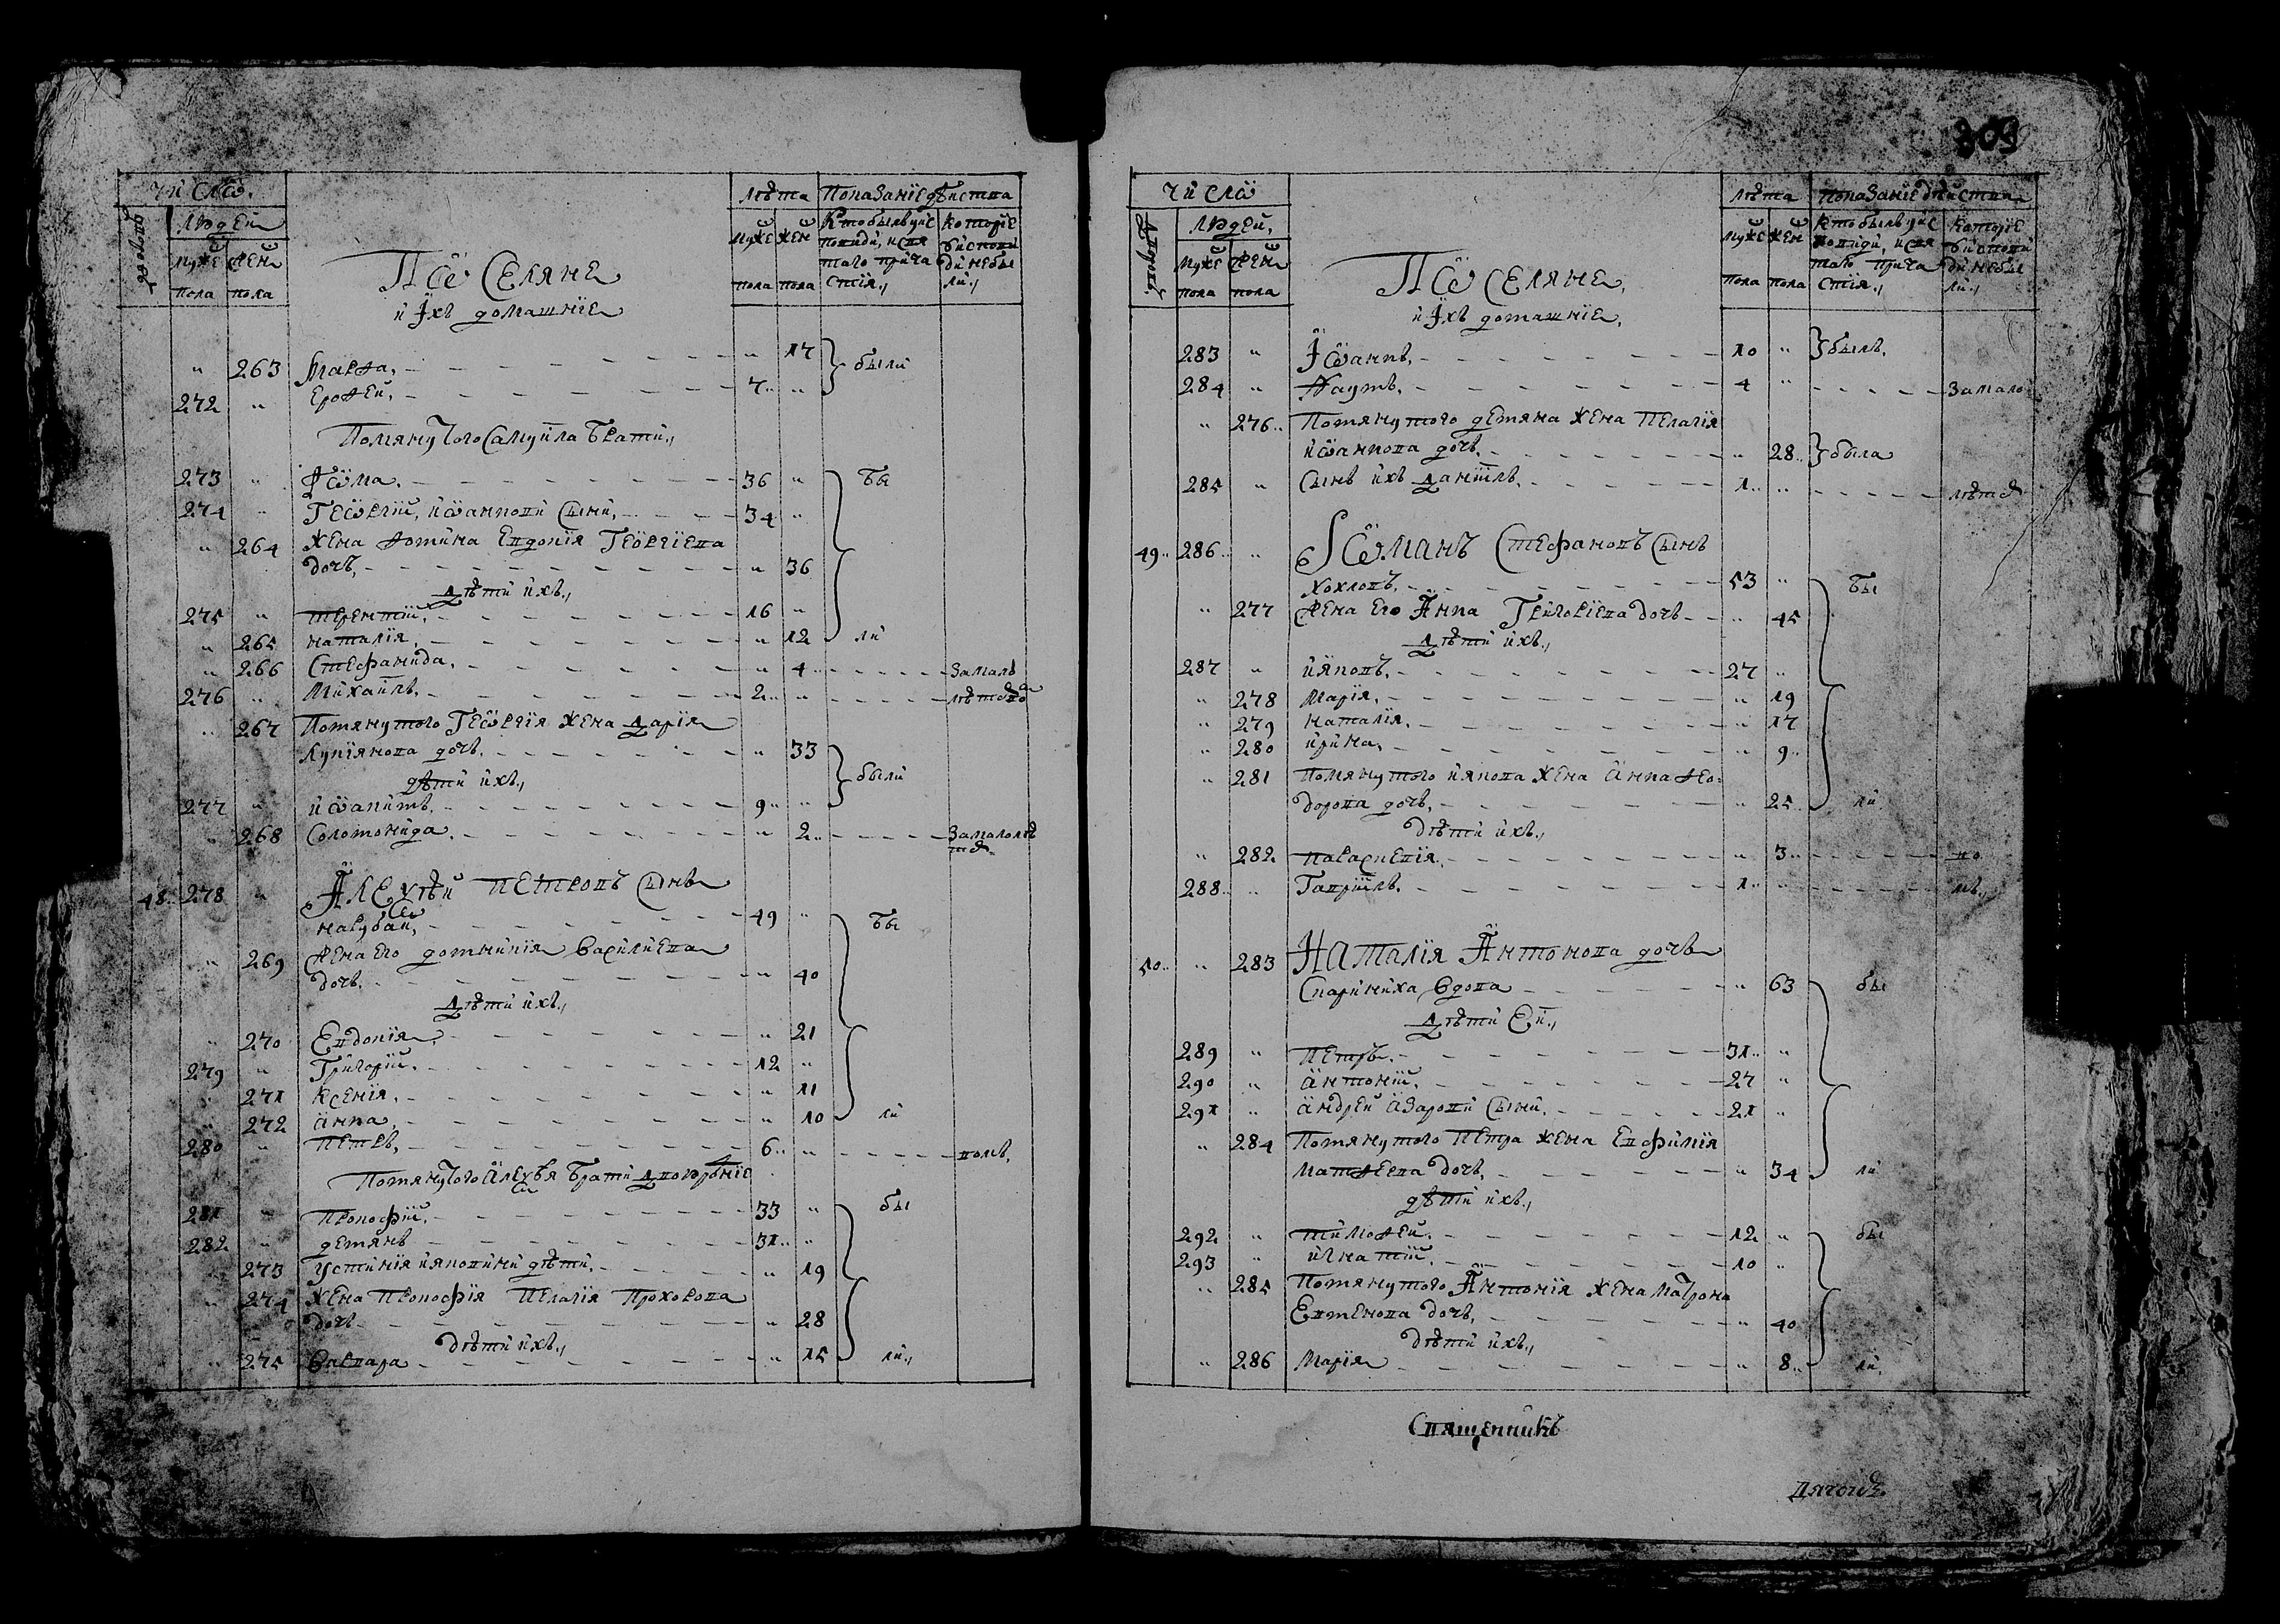 Число.
дворовъ
Людей
муже пола
жен пола
Поселяне
и ихъ домашніе
Лѣта
муже пола
жен пола
Показаніе дѣиства
Кто былъ у исповиди, и святаго причастія.,
которіе у исповиди небыли.,
" 263 Марѳа, " 17 были
272 " Ероѳей, 7 "
Помянутого Самуила брати.,
273 " Ѳома. 36 " бы
274 " Георгій, Иоаннови сыни, 34 "
" 264 Жена Ѳомина Евдокія Георгіева
дочъ, " 36
Дѣти ихъ.,
275 " Терентій, 16 "
" 265 Наталія, " 12 ли
" 266 Стефанида, " 4 замалъ
276 " Михаилъ, 2 " лѣтство
" 267 Помянутого Георгія жена Дарія
Лукіянова дочъ. " 33 были
дѣти ихъ.,
277 " Иоаникъ. 9 "
" 268 Соломонида. " 2 замалолѣтст
48 278 " Алеѯѣй Петровъ сынъ
49 " бы
" 269 Жена его Домникія Василиева
дочъ. " 40
Дѣти ихъ.,
" 270 Евдокія, " 21
279 " Григорій. 12 "
" 271 Ксенія, " 11
" 272 Анна, " 10 ли
280 " Петръ, 6 " вомъ,
Помянутого Алеѯѣя брати двоюрѣніе
281 " Прокофій, 33 " бы
282 " Демянъ 31 "
" 273 Устинія Яковини дѣти, " 19
" 274 Жена Прокофія Пелагія Прохорова
дочъ " 28
дѣти ихъ.,
" 275 Варвара " 15 ли.,
309
Число
дворовъ
Людей,
муже пола
жен пола
Поселяне,
и ихъ домашніе,
Лѣта
муже пола
жен пола
Показаніе дѣйства
Кто былъ у исповиди, и святаго причастія.,
каторіе у исповиди небыли.,
283 " Иоаннъ, 10 " былъ,
284 " Наумъ. 4 " замало
" 276 Помянутого Демяна жена Пелагія
Иоаннова дочъ. " 28 была
285 " Сынъ ихъ Даніилъ, 1 " лѣтст
49 286 " Романъ Стефановъ сынъ
Хохловъ. 53 " бы
" 277 Жена его Анна Григоріева дочъ " 45
Дѣти ихъ.,
287 " Яковъ. 27 "
" 278 Марія. " 19
" 279 Наталія. " 17
" 280 Ирина, " 9
" 281 Помянутого Якова жена Анна Ѳео=
дорова дочъ, " 25 ли
дѣти ихъ.,
" 282 Параскевія. " 3 во
288 " Гавріилъ. 1 " мъ.,
50 " 283 Наталія Антонова дочъ
вдова " 63 бы
Дѣти ей.,
289 " Петръ. 31 "
290 " Антоній. 27 "
291 " Андрей Азарови сыни. 21 "
" 284 Помянутого Петра жена Евфимія
Матѳеева дочъ, " 34 ли
дѣти ихъ.,
292 " Тимоѳей. 12 " бы
293 " Игнатій. 10 "
" 285 Помянутого Антонія жена Матрона
Евтенова дочъ, " 40
дѣти ихъ.,
" 286 Марія " 8 ли.
Священникъ